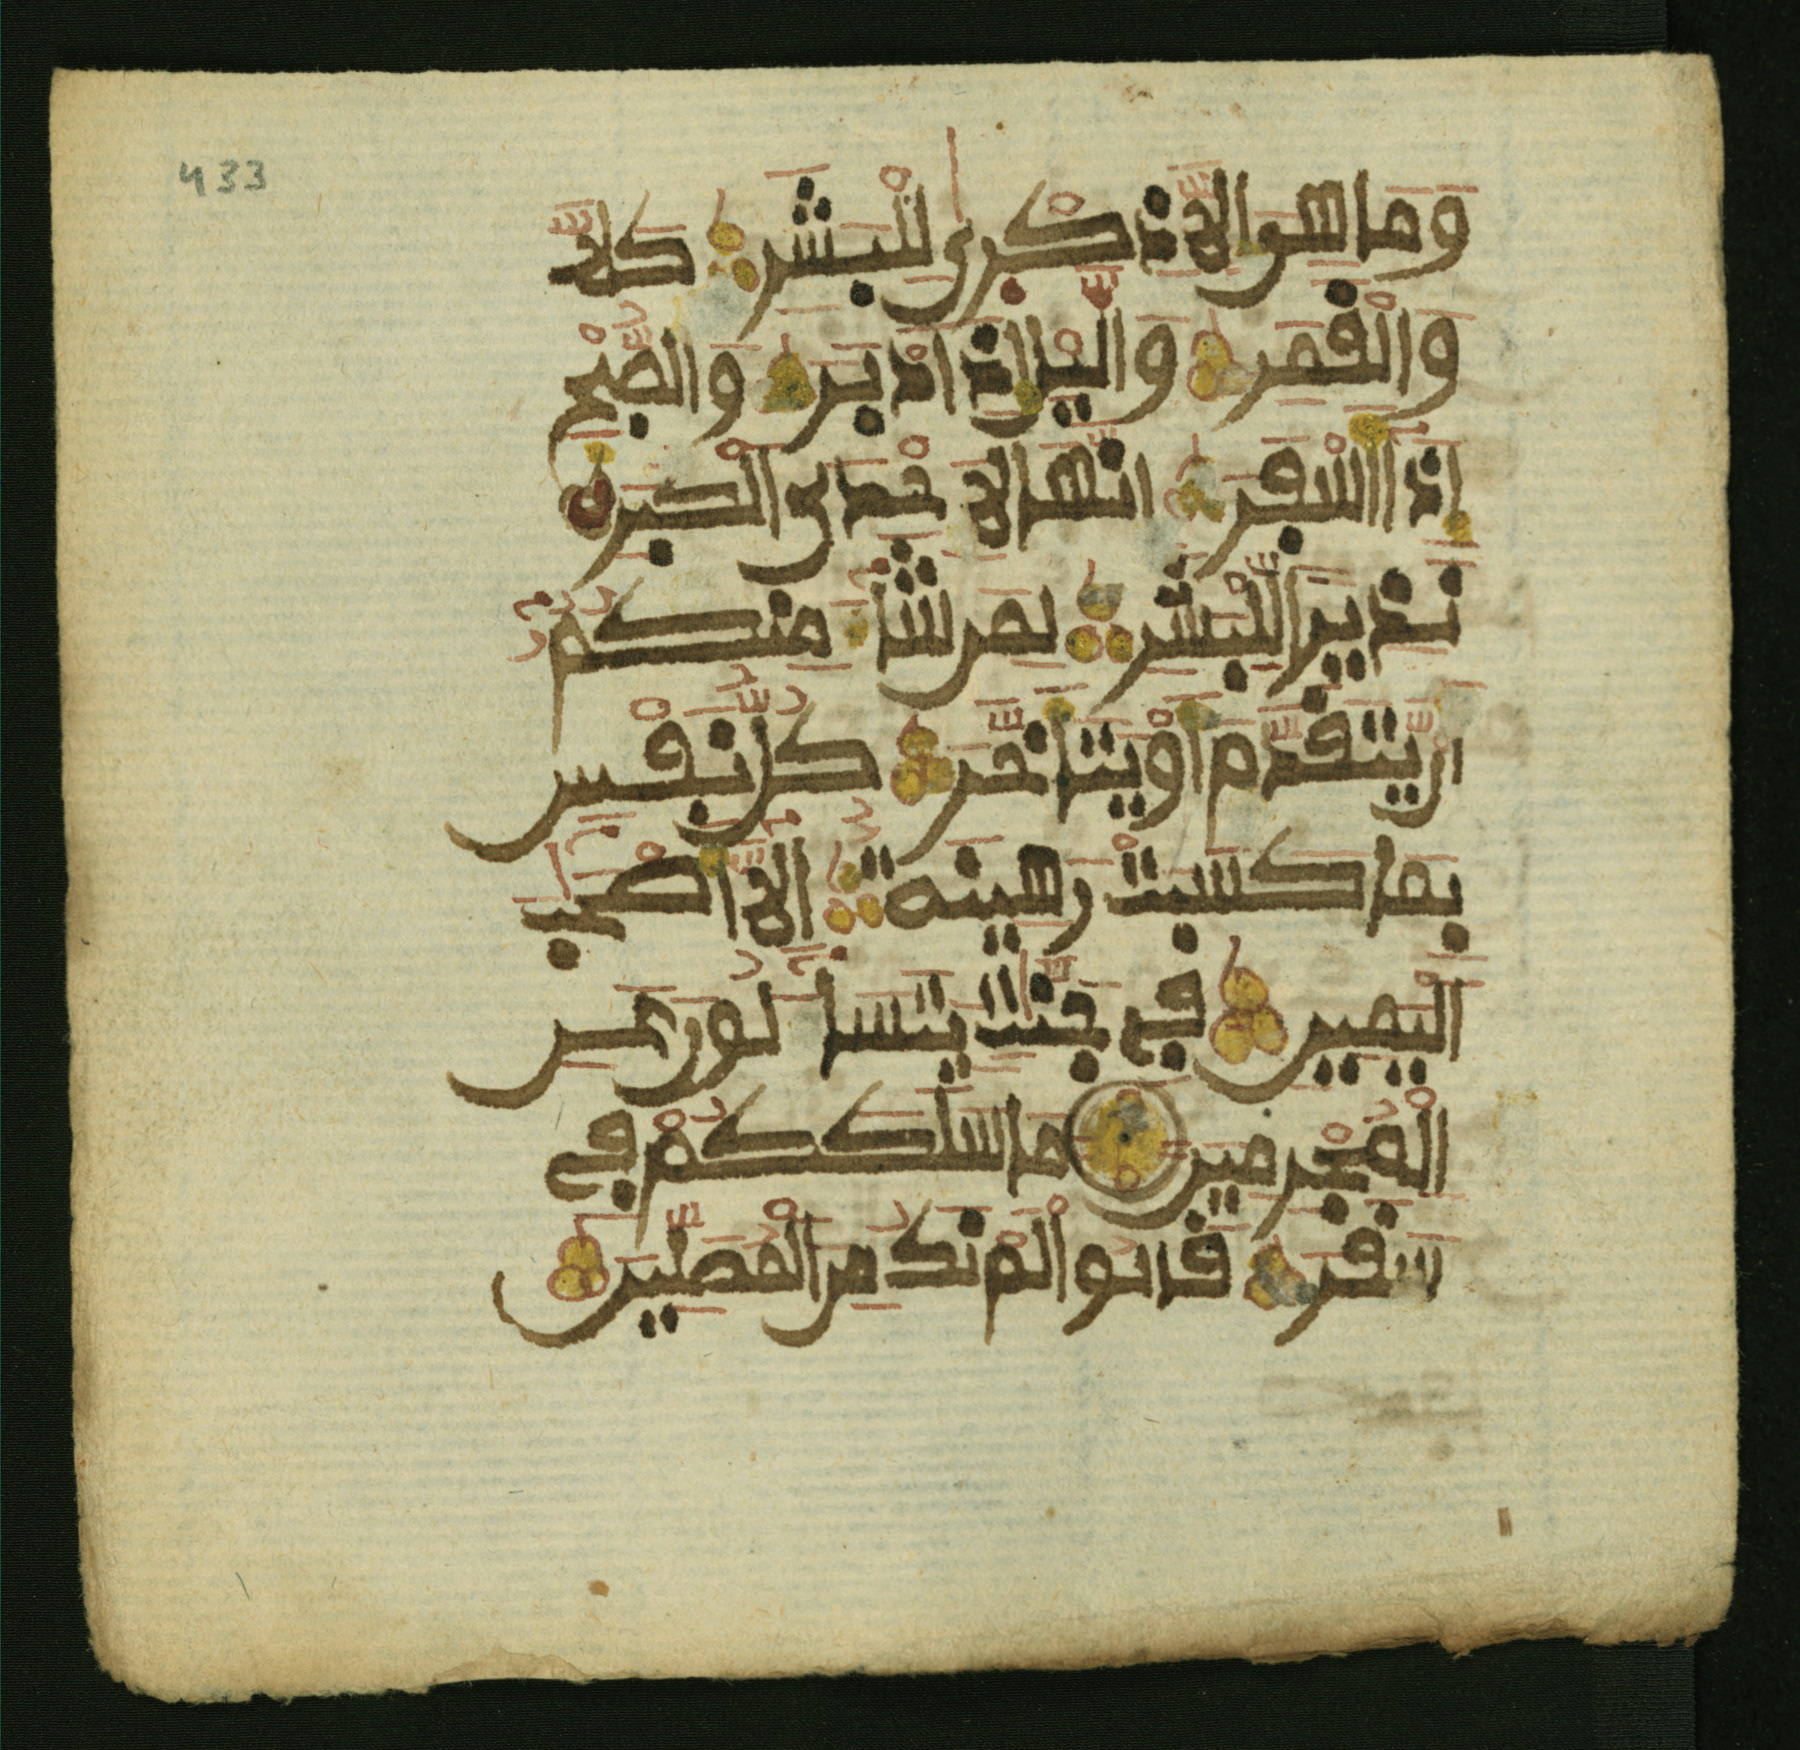 433
وما هو الا ذكرى للبشر كلا
والقمر واليل اذ ادبر والصبح
اذا اسفر انها لاحدى الكبر
نذيرا للبشر لمن شا منكم
ان يتقدم او يتاخر كل نفس
بما كسبت رهينة الا اصحب
اليمين في جنت يتسا لون عن
المجرمين ما سلككم في
سقر قالوا لم نك من المصلين